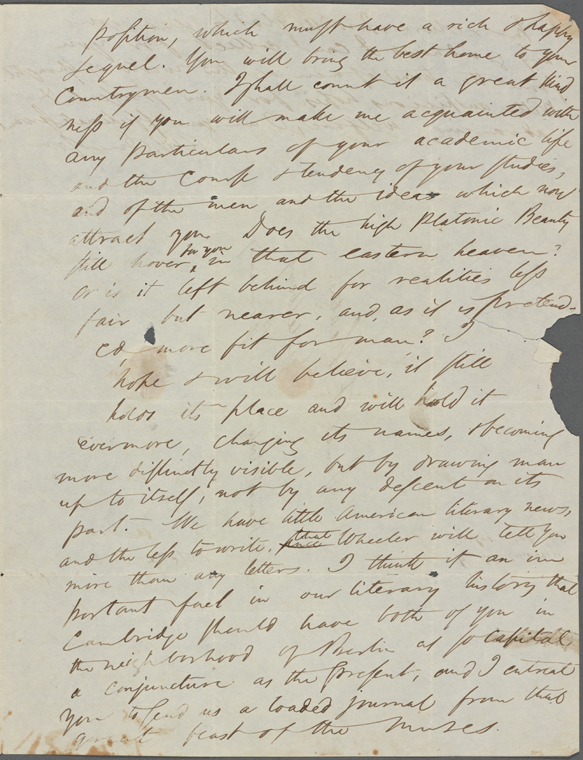 position, which must have a rich & happy
sequel. You will bring the best home to your
Countrymen. I shall count it a great kind
ness if you will make me acquainted with
any particulars of your academic life
and the course & tendency of your studies,
and of the men and the ideas which now
attract you Does the high Platonic Beauty
still hover for you in that eastern heaven?
or is it left behind for realities less
fair but nearer, and, as it is pretend-
ed, more fit for man? I
hope & will believe, it still
holds its place and will hold it
evermore, changing its names, & becoming
more distinctly visible, but by drawing man
up to itself, not by any descent on its
part. We have little American literary news,
and the less to write, that Wheeler will tell you
more than any letters. I think it an im
portant fact in our literary history that
Cambridge should have both of you in
the neighborhood of Berlin at so capital
a conjuncture as the present, and I entreat
you to send us a loaded journal from that
great feast of the Muses.